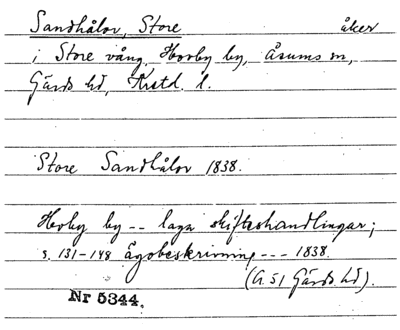 Sandhålor, Store åker
i Store vång, Horby by, Åsums sn,
Gärds hd, Krstd. l.
Store Sandhålor 1838.
Horby by -- laga skifteshandlingar;
s. 131-148 Ägobeskrivning --- 1838.
(G. 51 Gärds hd).
Nr 5344.